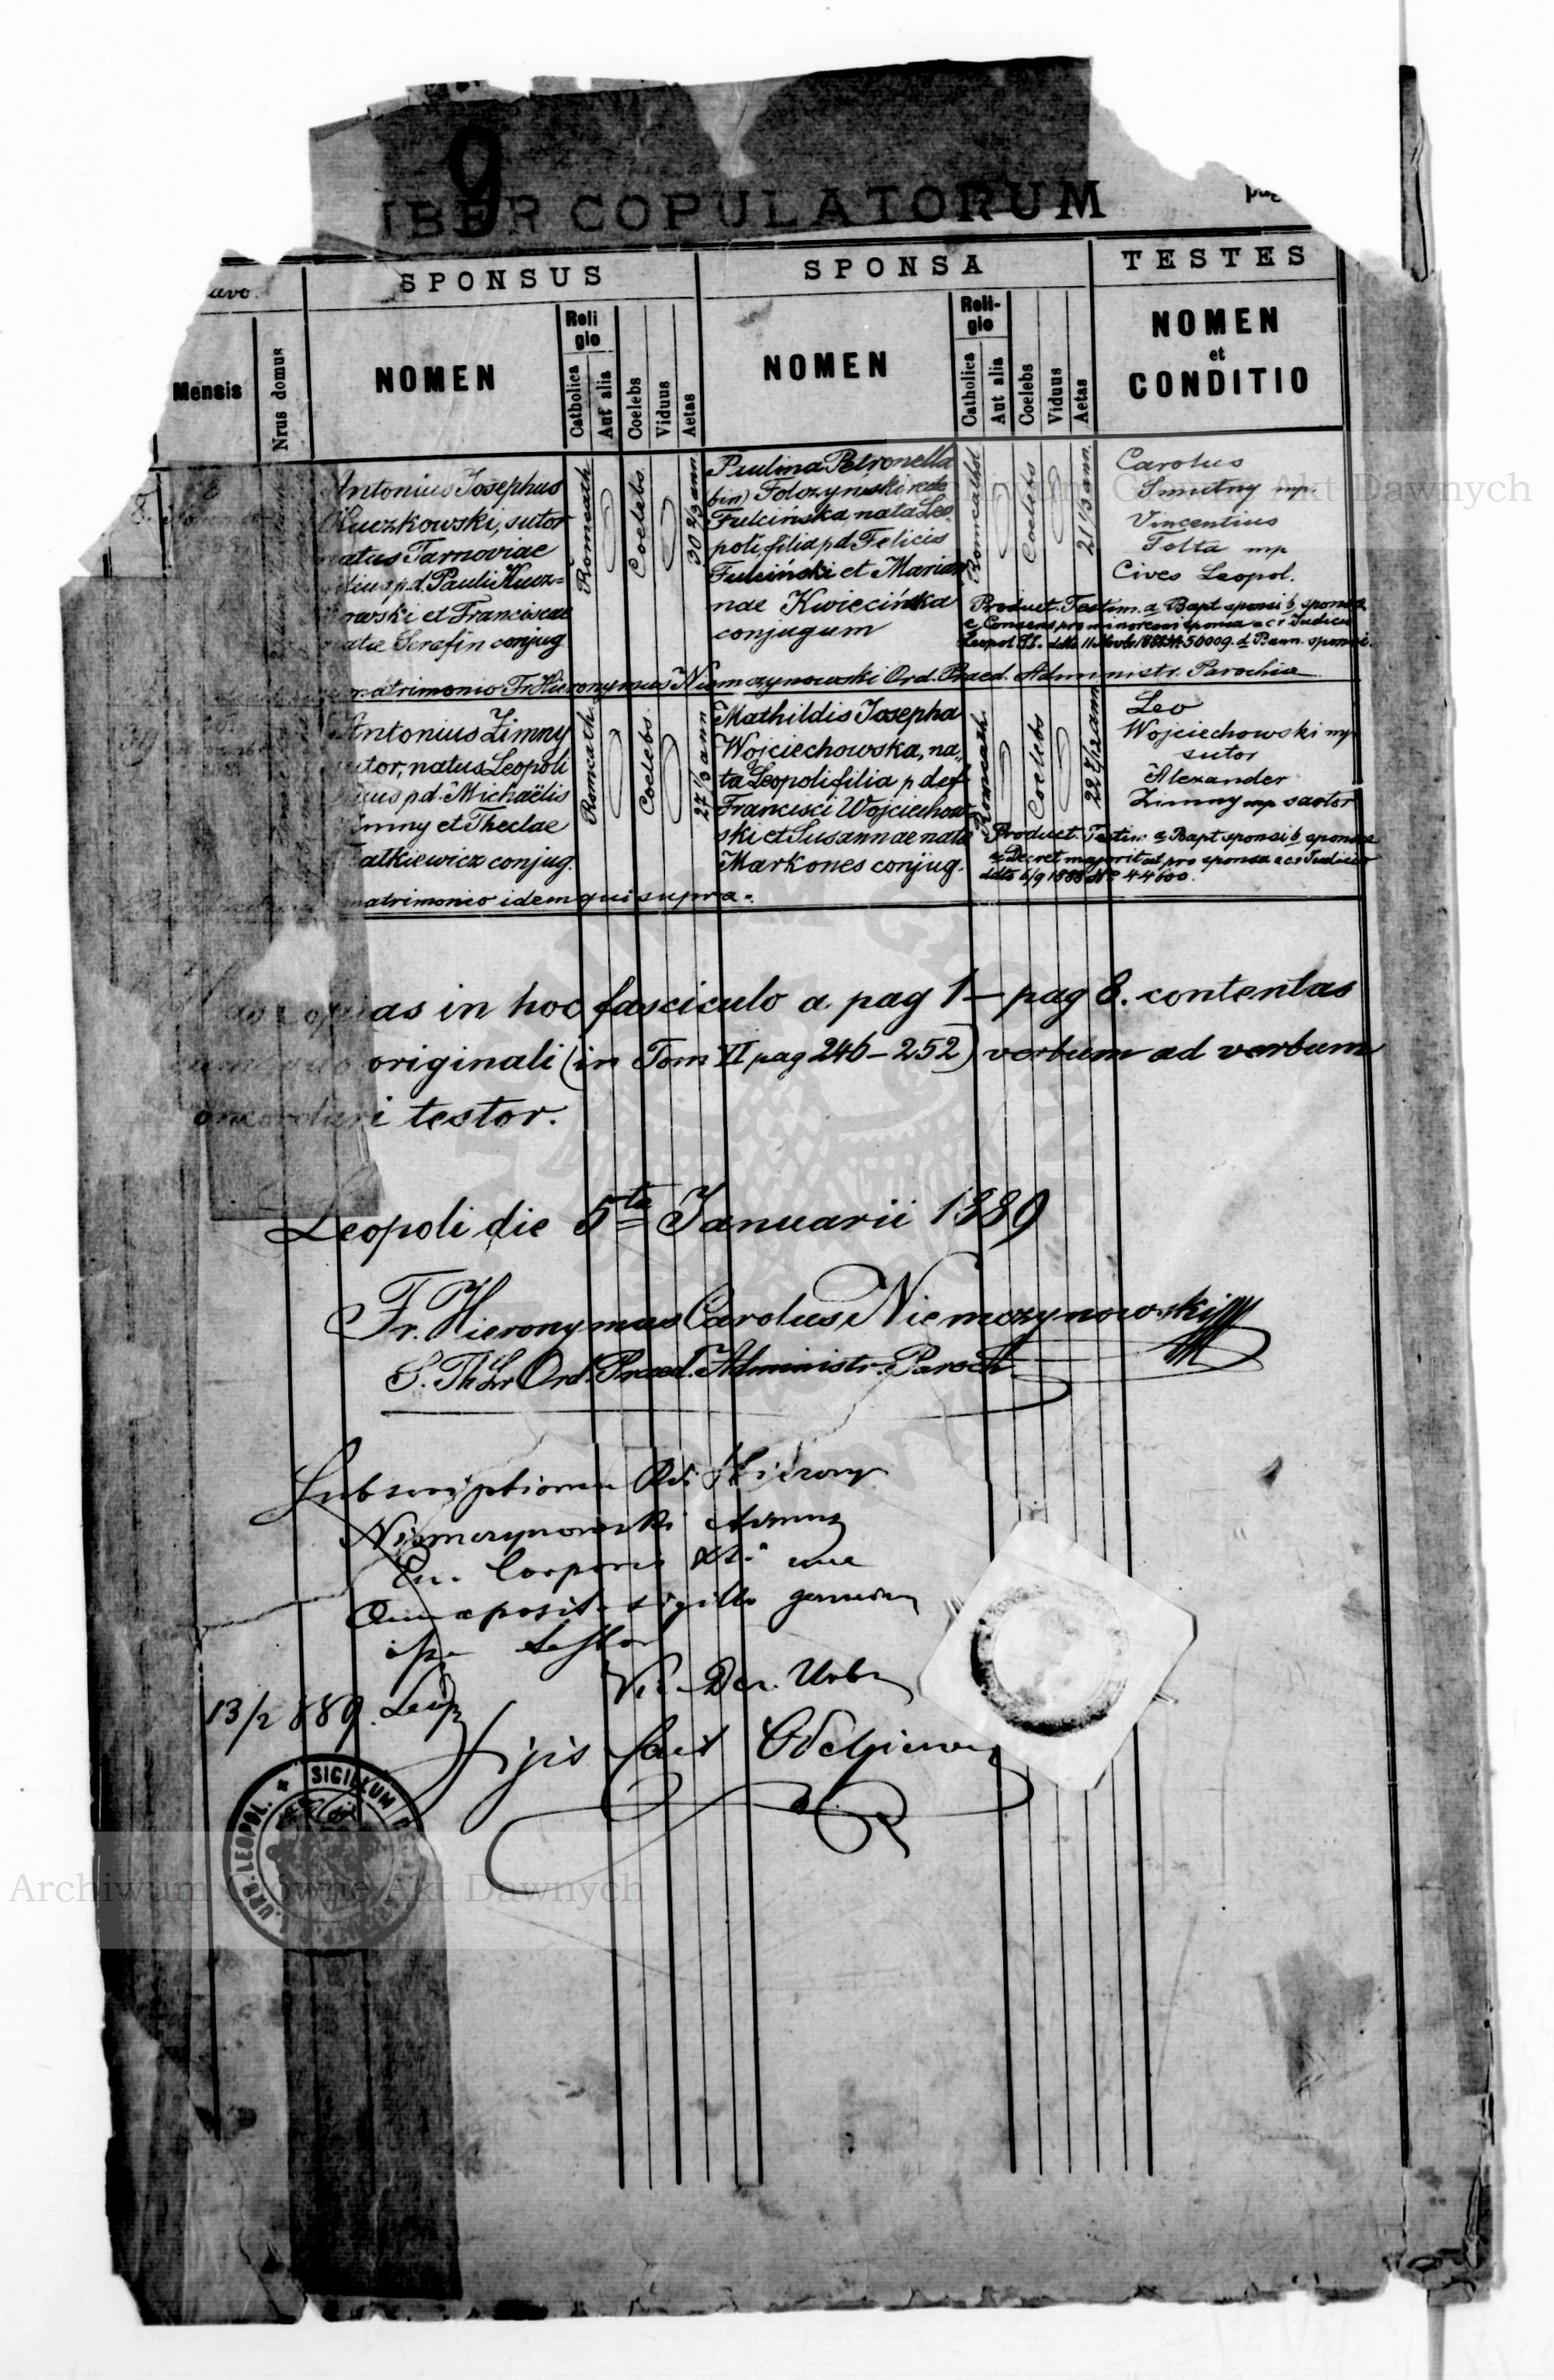 9
IBER COPULATORUM
pag
SPONSUS
SPONSA
TESTES
Mensis
Nrus domus
NOMEN
Religio
Catholica
Aut alia
Coelebs
Viduus
Aetas
NOMEN
Religio
Catholica
Aut alia
Coelebs
Viduus
Aetas
NOMEN
et
CONDITIO
8.
Antonius Josephus
Kuczkowski, sutor
natus Tarnoviae
filius p.d. Pauli Kucz=
kowski et Franciscae
natae Serafin conjug
Rom cath
Coelebs.
30 2/3 ann
Paulina Petronella
bin) Folczynski recte
Fulcińska, nata Leo
poli, filia p d Felicis
Fulciński et Marian
nae Kwiecińska
conjugum
Rom cathol
Coelebs
21 1/3 ann.
Carolus
Smutny mp.
Vincentius
Tolta mp
Cives Leopol.
Product. Testim. a Bapt sponsi b, sponsae
c Consens pro minorenni sponsa a c r Judicio
d Bann. sponsi.
matrimonio Fr. Hieronymus Niemczynowski Ord. Praed. Administr. Parochia
30
Antonius Zimny
sutor, natus Leopoli
filius p d. Michaëlis
Zimny et Theclae
atkiewicz conjug.
Rom cath.
Coelebs.
27 1/3 ann
Mathildis Josepha
Wojciechowska, na,,
ta Leopoli filia p def
Francisci Wojciechow
ski et Susannae nata
Markones conjug.
Rom cath.
Coelebs
22 7/12 ann
Leo
Wojciechowski mp
sutor
Alexander
Zimny mp sartor
Product. Testim a Bapt sponsi b sponsae
c Decret majoritat pro sponsa a c r Judicio
ddto 6/9 1888 No 44600.
matrimonio idem qui supra.
Has copias in hoc fasciculo a pag 1 – pag 8. contentas
cum suo originali (in Tom VI pag 246 – 252) verbum ad verbum
concordari testor.
Leopoli die 5ta Januarii 1889
Fr. Hieronymus Carolus Niemczynowski
S. Th Lr Ord. Praed. Administr. Paroch
Subscriptionem Rdi Hierony
Niemczynowski Admin
Ecc. Corporis Xti una
cum aposit. sigillo genuin
testor
Vic. Dec. Urb
13/2 889. Leop
SIGILLUM
URB. LEOPOL.
Archiwum Główne Akt Dawnych
Archiwum Główne Akt Dawnych